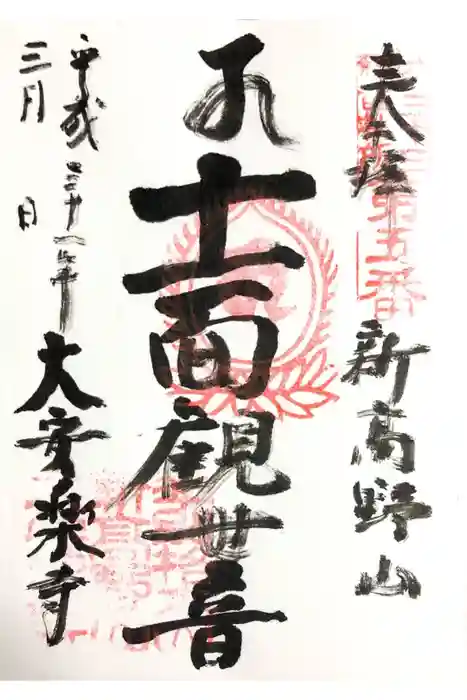 奉拝
第五番
新高野山
十一面觀世音
平成三十一年
三月 日
大安楽寺